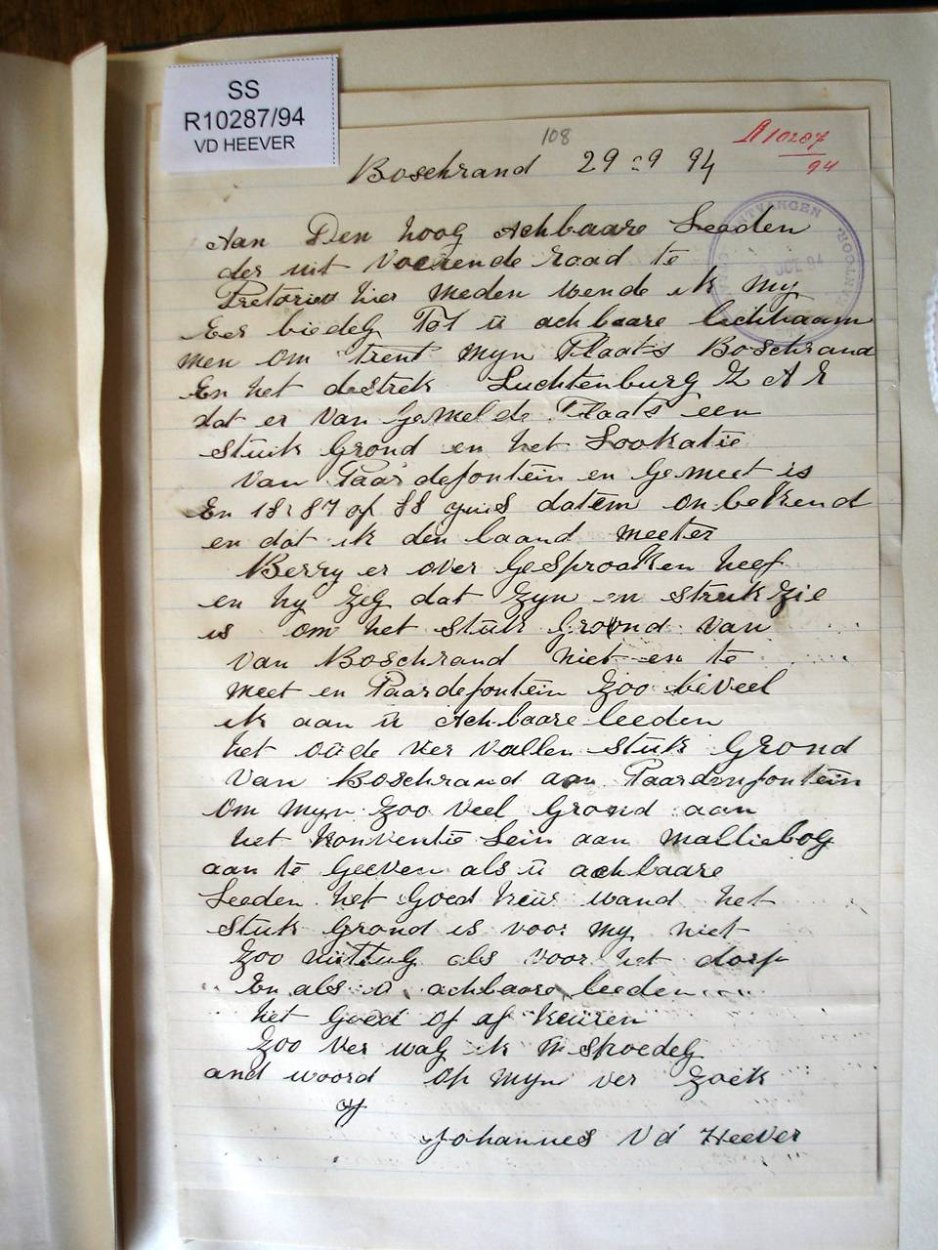 SS
R10287/94
VD HEEVER
108
R10287
94
Boschrand 29 9 94
ONTVANGEN
KANTOOR
Aan Den hoog Achbaare Leeden
der uit voerende raad te
Pretoria hier meden wende ik my
Eer biedeg Tot u achbaare lichhaam
men om trent myn Plaats Boschrand
En het destrek Luchtenburg Z A R
dat er van gemelde Plaats een
stuik Grond en het Lookatie
van Paardefontein en gemeet is
En 1887 of 88 datem onbekend
en dat ik den laand meeter
Berry er over Gesprooken heef
en hy zeg dat zyn en strukzie
is om het stuk Grond van
van Boschrand niet en te
meet en Paardefontein Zoo beveel
ik aan u Achbaare leeden
het oude ver vallen stuk Grond
van Boschrand aan Paardenfontein
om myn zoo veel Grond aan
het konventie Lein aan malliebog
aan te Geeven als u achbaare
Leeden het Goed keur wand het
stuk Grond is voor my niet
Zoo nuttug als voor het dorp
En als u achbaare leeden
het Goed of af keuren
Zoo ver wag ik u spoedeg
and woord op myn ver zoek
Johannes vd Heever